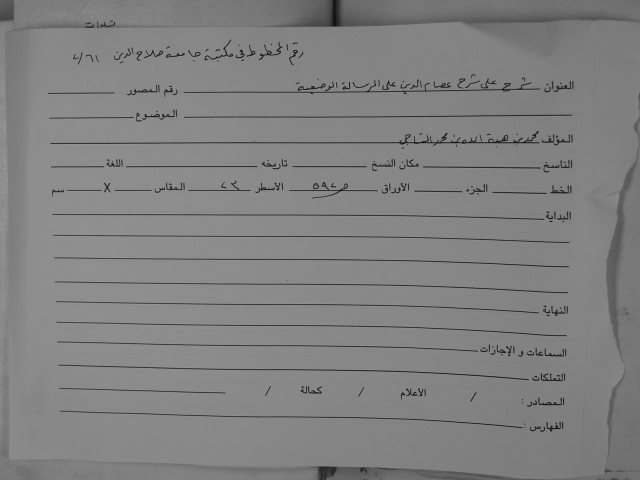 رقم المخطوط في مكتبة جامعة صلاح الدين ٧/٦١
العنوان شرح على شرح عصام الدين على الرسالة الوضعية رقم المصور
الموضوع
المؤلف محمد بن هبة الله بن محمد
الناسخ مكان النسخ تاريخه اللغة
الخط الجزء الأوراق الأسطر ٢٣ المقاس X سم
البداية
النهاية
السماعات و الإجازات
التملكات
المصادر : / الأعلام / كحالة /
الفهارس :